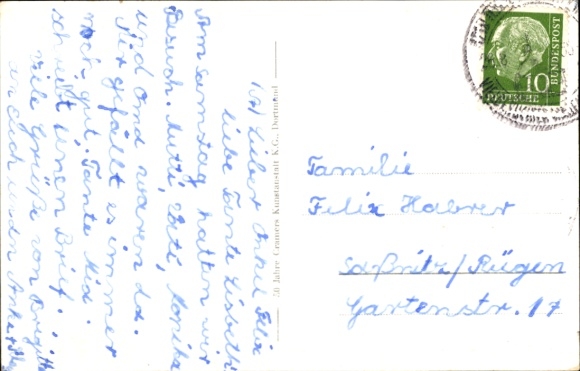 Lieber Onkel Felix
liebe Tante Lisbeth
Am samstag hatten wir
Besuch. Mutti, Vati, Monika
und Omd waren da.
Hir gefällt es immer
noch gut. Tante Mia
schreibt einen Brief.
Viele Grüße von Brigitte
50 Jahre Cramers Kunstanstalt K.G., Dortmund
10
DEUTSCHE BUNDESPOST
Familie
Felix Habrer
Saßnitz/Rügen
Gartenstr. 17